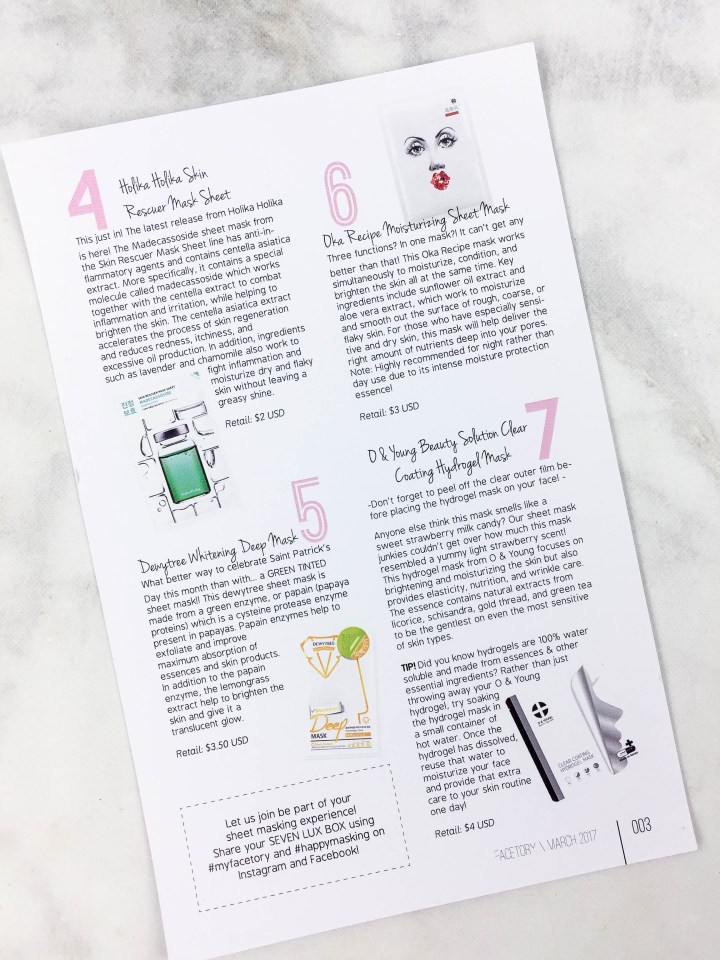 4
Holika Holika Skin
Rescuer Mask Sheet
This just in! The latest release from Holika Holika
is here! The Madecassoside sheet mask from
the Skin Rescuer Mask Sheet line has anti-in-
flammatory agents and contains centella asiatica
extract. More specifically, it contains a special
molecule called madecassoside which works
together with the centella extract to combat
inflammation and irritation, while helping to
brighten the skin. The centella asiatica extract
accelerates the process of skin regeneration
and reduces redness, itchiness, and
excessive oil production. In addition, ingredients
such as lavender and chamomile also work to
fight inflammation and
moisturize dry and flaky
skin without leaving a
greasy shine.
Retail: $2 USD
진정
보호
SKIN RESCUER MASK SHEET
MADECASSOSIDE
5
Dewytree Whitening Deep Mask
What better way to celebrate Saint Patrick's
Day this month than with... a GREEN TINTED
sheet mask!! This dewytree sheet mask is
made from a green enzyme, or papain (papaya
proteins) which is a cysteine protease enzyme
present in papayas. Papain enzymes help to
exfoliate and improve
maximum absorption of
essences and skin products.
In addition to the papain
enzyme, the lemongrass
extract help to brighten the
skin and give it a
translucent glow.
Retail: $3.50 USD
DEWYTREE
Deep
MASK
Let us join be part of your
sheet masking experience!
Share your SEVEN LUX BOX using
#myfacetory and #happymasking on
Instagram and Facebook!
6
Oka Recipe Moisturizing Sheet Mask
Three functions? In one mask?! It can't get any
better than that! This Oka Recipe mask works
simultaneously to moisturize, condition, and
brighten the skin all at the same time. Key
ingredients include sunflower oil extract and
aloe vera extract, which work to moisturize
and smooth out the surface of rough, coarse, or
flaky skin. For those who have especially sensi-
tive and dry skin, this mask will help deliver the
right amount of nutrients deep into your pores.
Note: Highly recommended for night rather than
day use due to its intense moisture protection
essence!
Retail: $3 USD
7
O & Young Beauty Solution Clear
Coating Hydrogel Mask
-Don't forget to peel off the clear outer film be-
fore placing the hydrogel mask on your face! -
Anyone else think this mask smells like a
sweet strawberry milk candy? Our sheet mask
junkies couldn't get over how much this mask
resembled a yummy light strawberry scent!
This hydrogel mask from O & Young focuses on
brightening and moisturizing the skin but also
provides elasticity, nutrition, and wrinkle care.
The essence contains natural extracts from
licorice, schisandra, gold thread, and green tea
to be the gentlest on even the most sensitive
of skin types.
TIP! Did you know hydrogels are 100% water
soluble and made from essences & other
essential ingredients? Rather than just
throwing away your O & Young
hydrogel, try soaking
the hydrogel mask in
a small container of
hot water. Once the
hydrogel has dissolved,
reuse that water to
moisturize your face
and provide that extra
care to your skin routine
one day!
Retail: $4 USD
CLEAR COATING
HYDROGEL MASK
FACETORY \ MARCH 2017
003